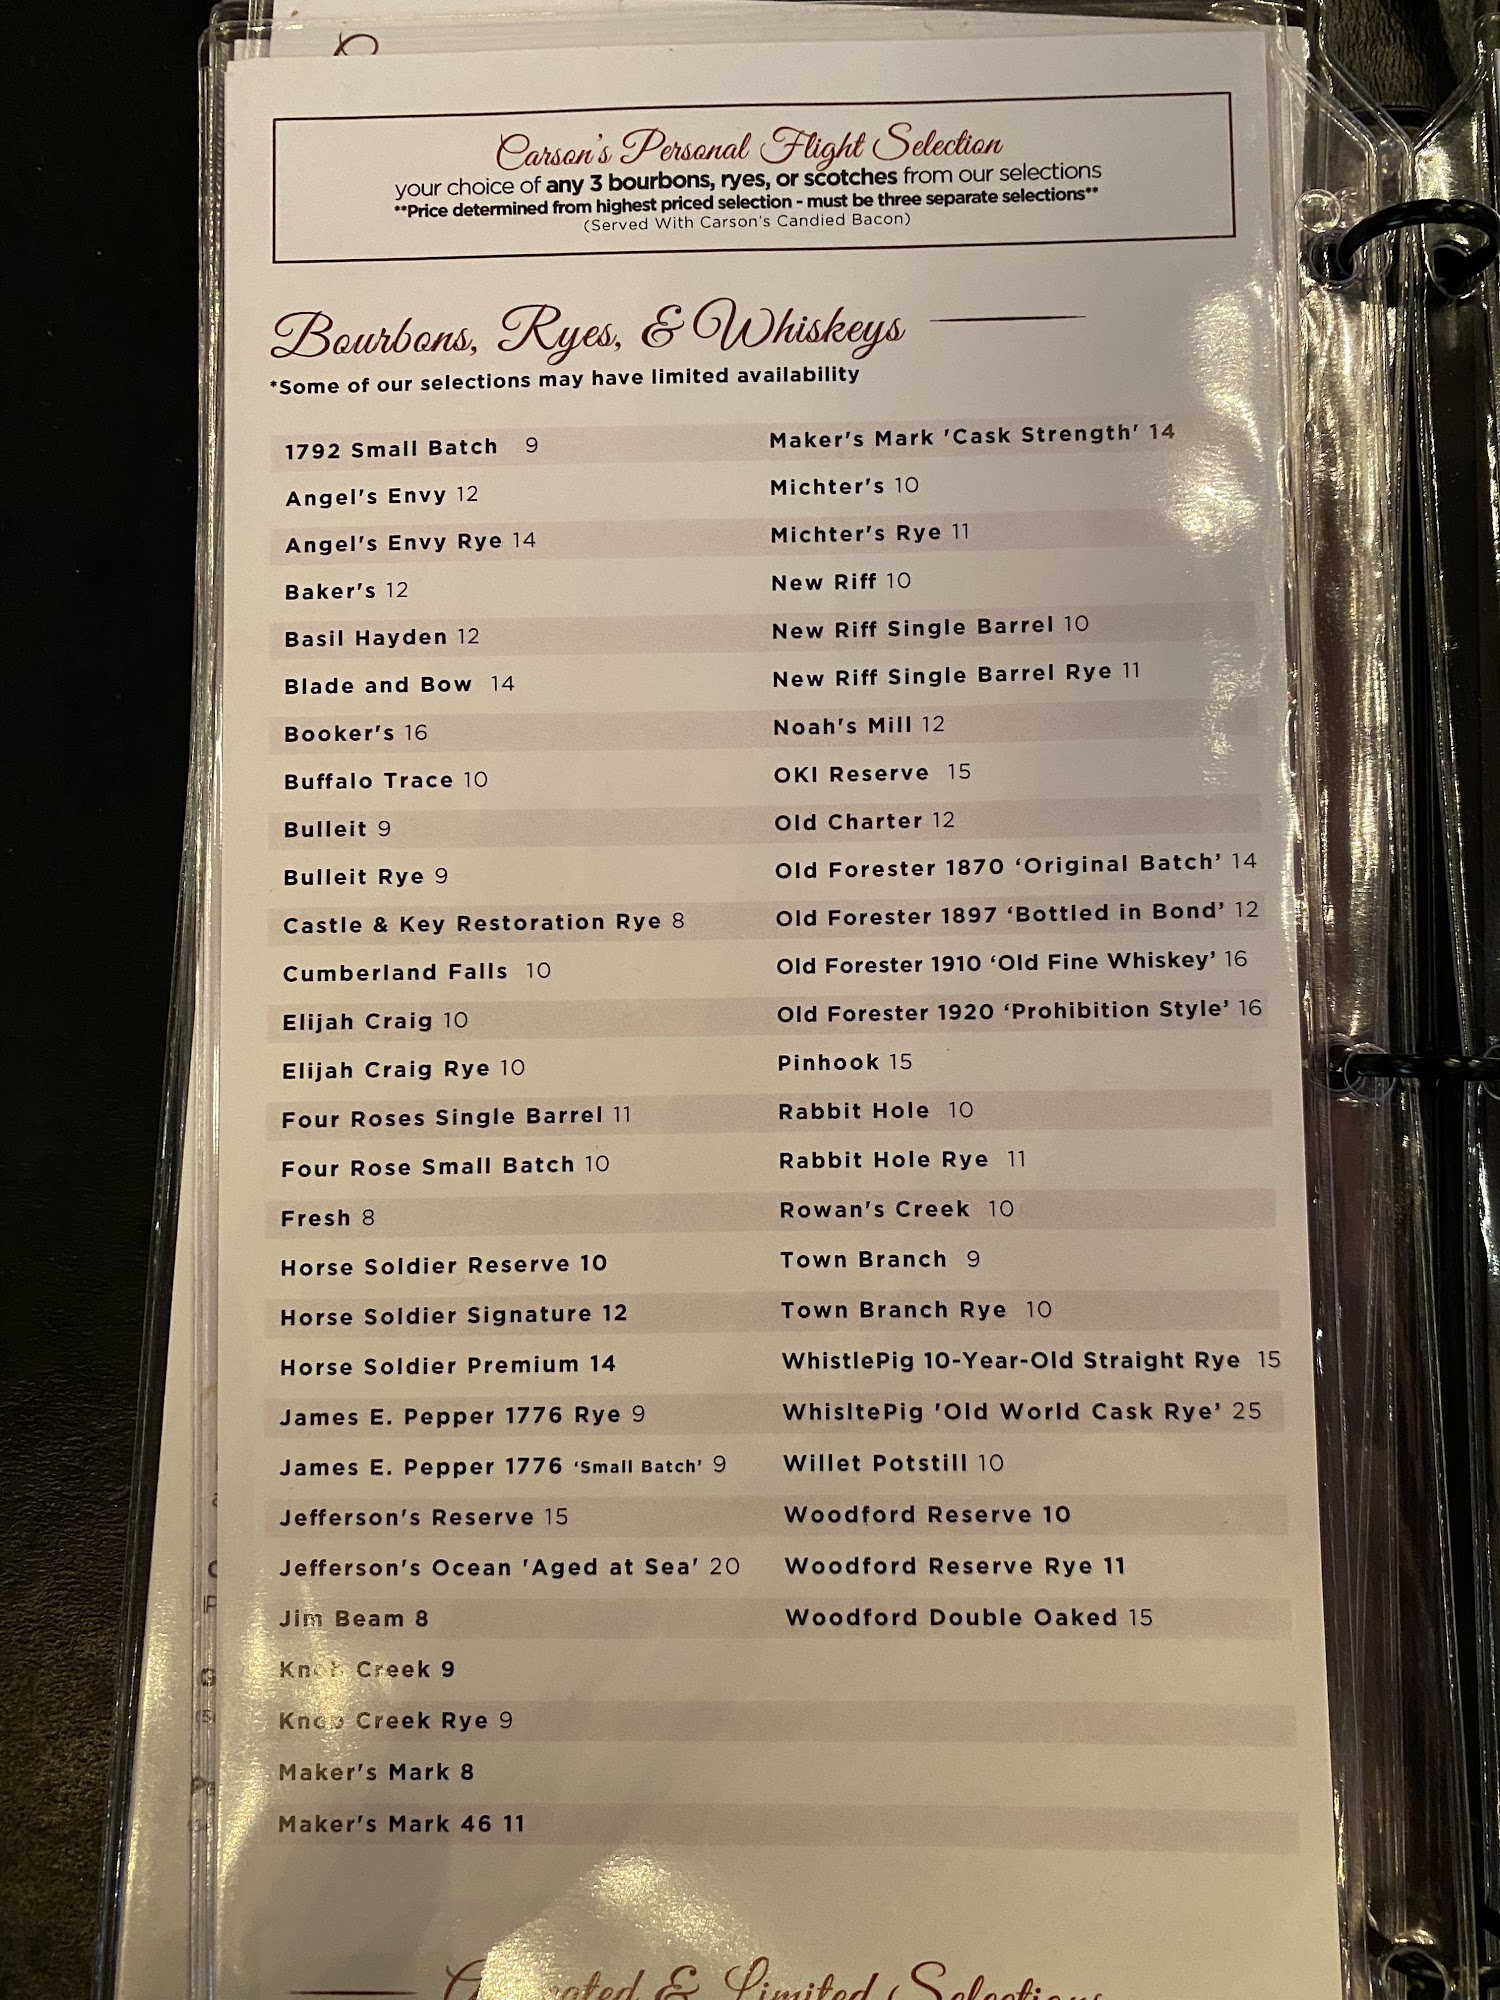 Carson's Personal Flight Selection
your choice of any 3 bourbons, ryes, or scotches from our selections
**Price determined from highest priced selection - must be three separate selections**
(Served With Carson's Candied Bacon)
Bourbons, Ryes, & Whiskeys
*Some of our selections may have limited availability
1792 Small Batch 9
Angel's Envy 12
Angel's Envy Rye 14
Baker's 12
Basil Hayden 12
Blade and Bow 14
Booker's 16
Buffalo Trace 10
Bulleit 9
Bulleit Rye 9
Castle & Key Restoration Rye 8
Cumberland Falls 10
Elijah Craig 10
Elijah Craig Rye 10
Four Roses Single Barrel 11
Four Rose Small Batch 10
Fresh 8
Horse Soldier Reserve 10
Horse Soldier Signature 12
Horse Soldier Premium 14
James E. Pepper 1776 Rye 9
James E. Pepper 1776 ‘Small Batch’ 9
Jefferson's Reserve 15
Jefferson's Ocean 'Aged at Sea' 20
Jim Beam 8
Knob Creek 9
Knob Creek Rye 9
Maker's Mark 8
Maker's Mark 46 11
Maker's Mark 'Cask Strength' 14
Michter's 10
Michter's Rye 11
New Riff 10
New Riff Single Barrel 10
New Riff Single Barrel Rye 11
Noah's Mill 12
OKI Reserve 15
Old Charter 12
Old Forester 1870 ‘Original Batch’ 14
Old Forester 1897 ‘Bottled in Bond’ 12
Old Forester 1910 ‘Old Fine Whiskey’ 16
Old Forester 1920 ‘Prohibition Style’ 16
Pinhook 15
Rabbit Hole 10
Rabbit Hole Rye 11
Rowan's Creek 10
Town Branch 9
Town Branch Rye 10
WhistlePig 10-Year-Old Straight Rye 15
WhisltePig 'Old World Cask Rye’ 25
Willet Potstill 10
Woodford Reserve 10
Woodford Reserve Rye 11
Woodford Double Oaked 15
& Limited Selections